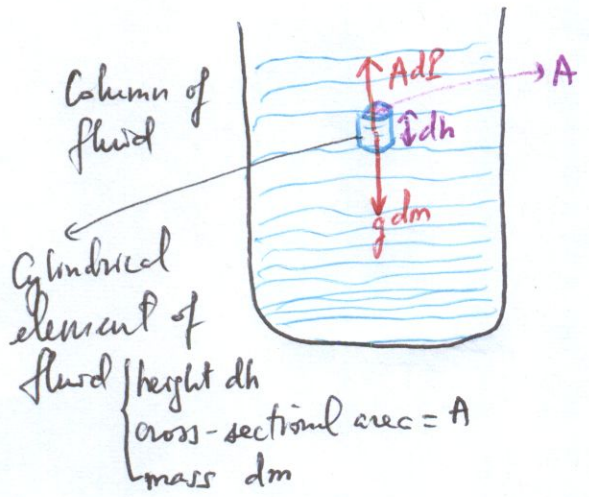 AdP
A
Column of
fluid
dh
g dm
Cylindrical
element of
fluid
height dh
cross-sectional area = A
mass dm